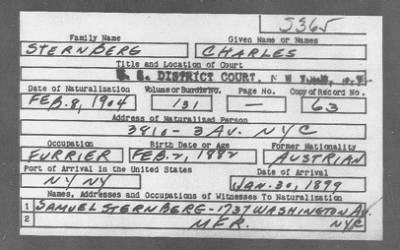 5365
Family Name Given Name or Names
STERNBERG CHARLES
Title and Location of Court
U. S. DISTRICT COURT, N.Y.
Date of Naturalization Volume or Bundle No. Page No. Copy of Record No.
FEB. 8, 1904 131 — 63
Address of Naturalized Person
3810-3 AV. NYC
Occupation Birth Date or Age Former Nationality
FURRIER FEB. 2, 1882 AUSTRIAN
Port of Arrival in the United States Date of Arrival
NY NY JAN. 30, 1899
Names, Addresses and Occupations of Witnesses To Naturalization
1 SAMUEL STERNBERG-1737 WASHINGTON AV.
2 MFR. NYC